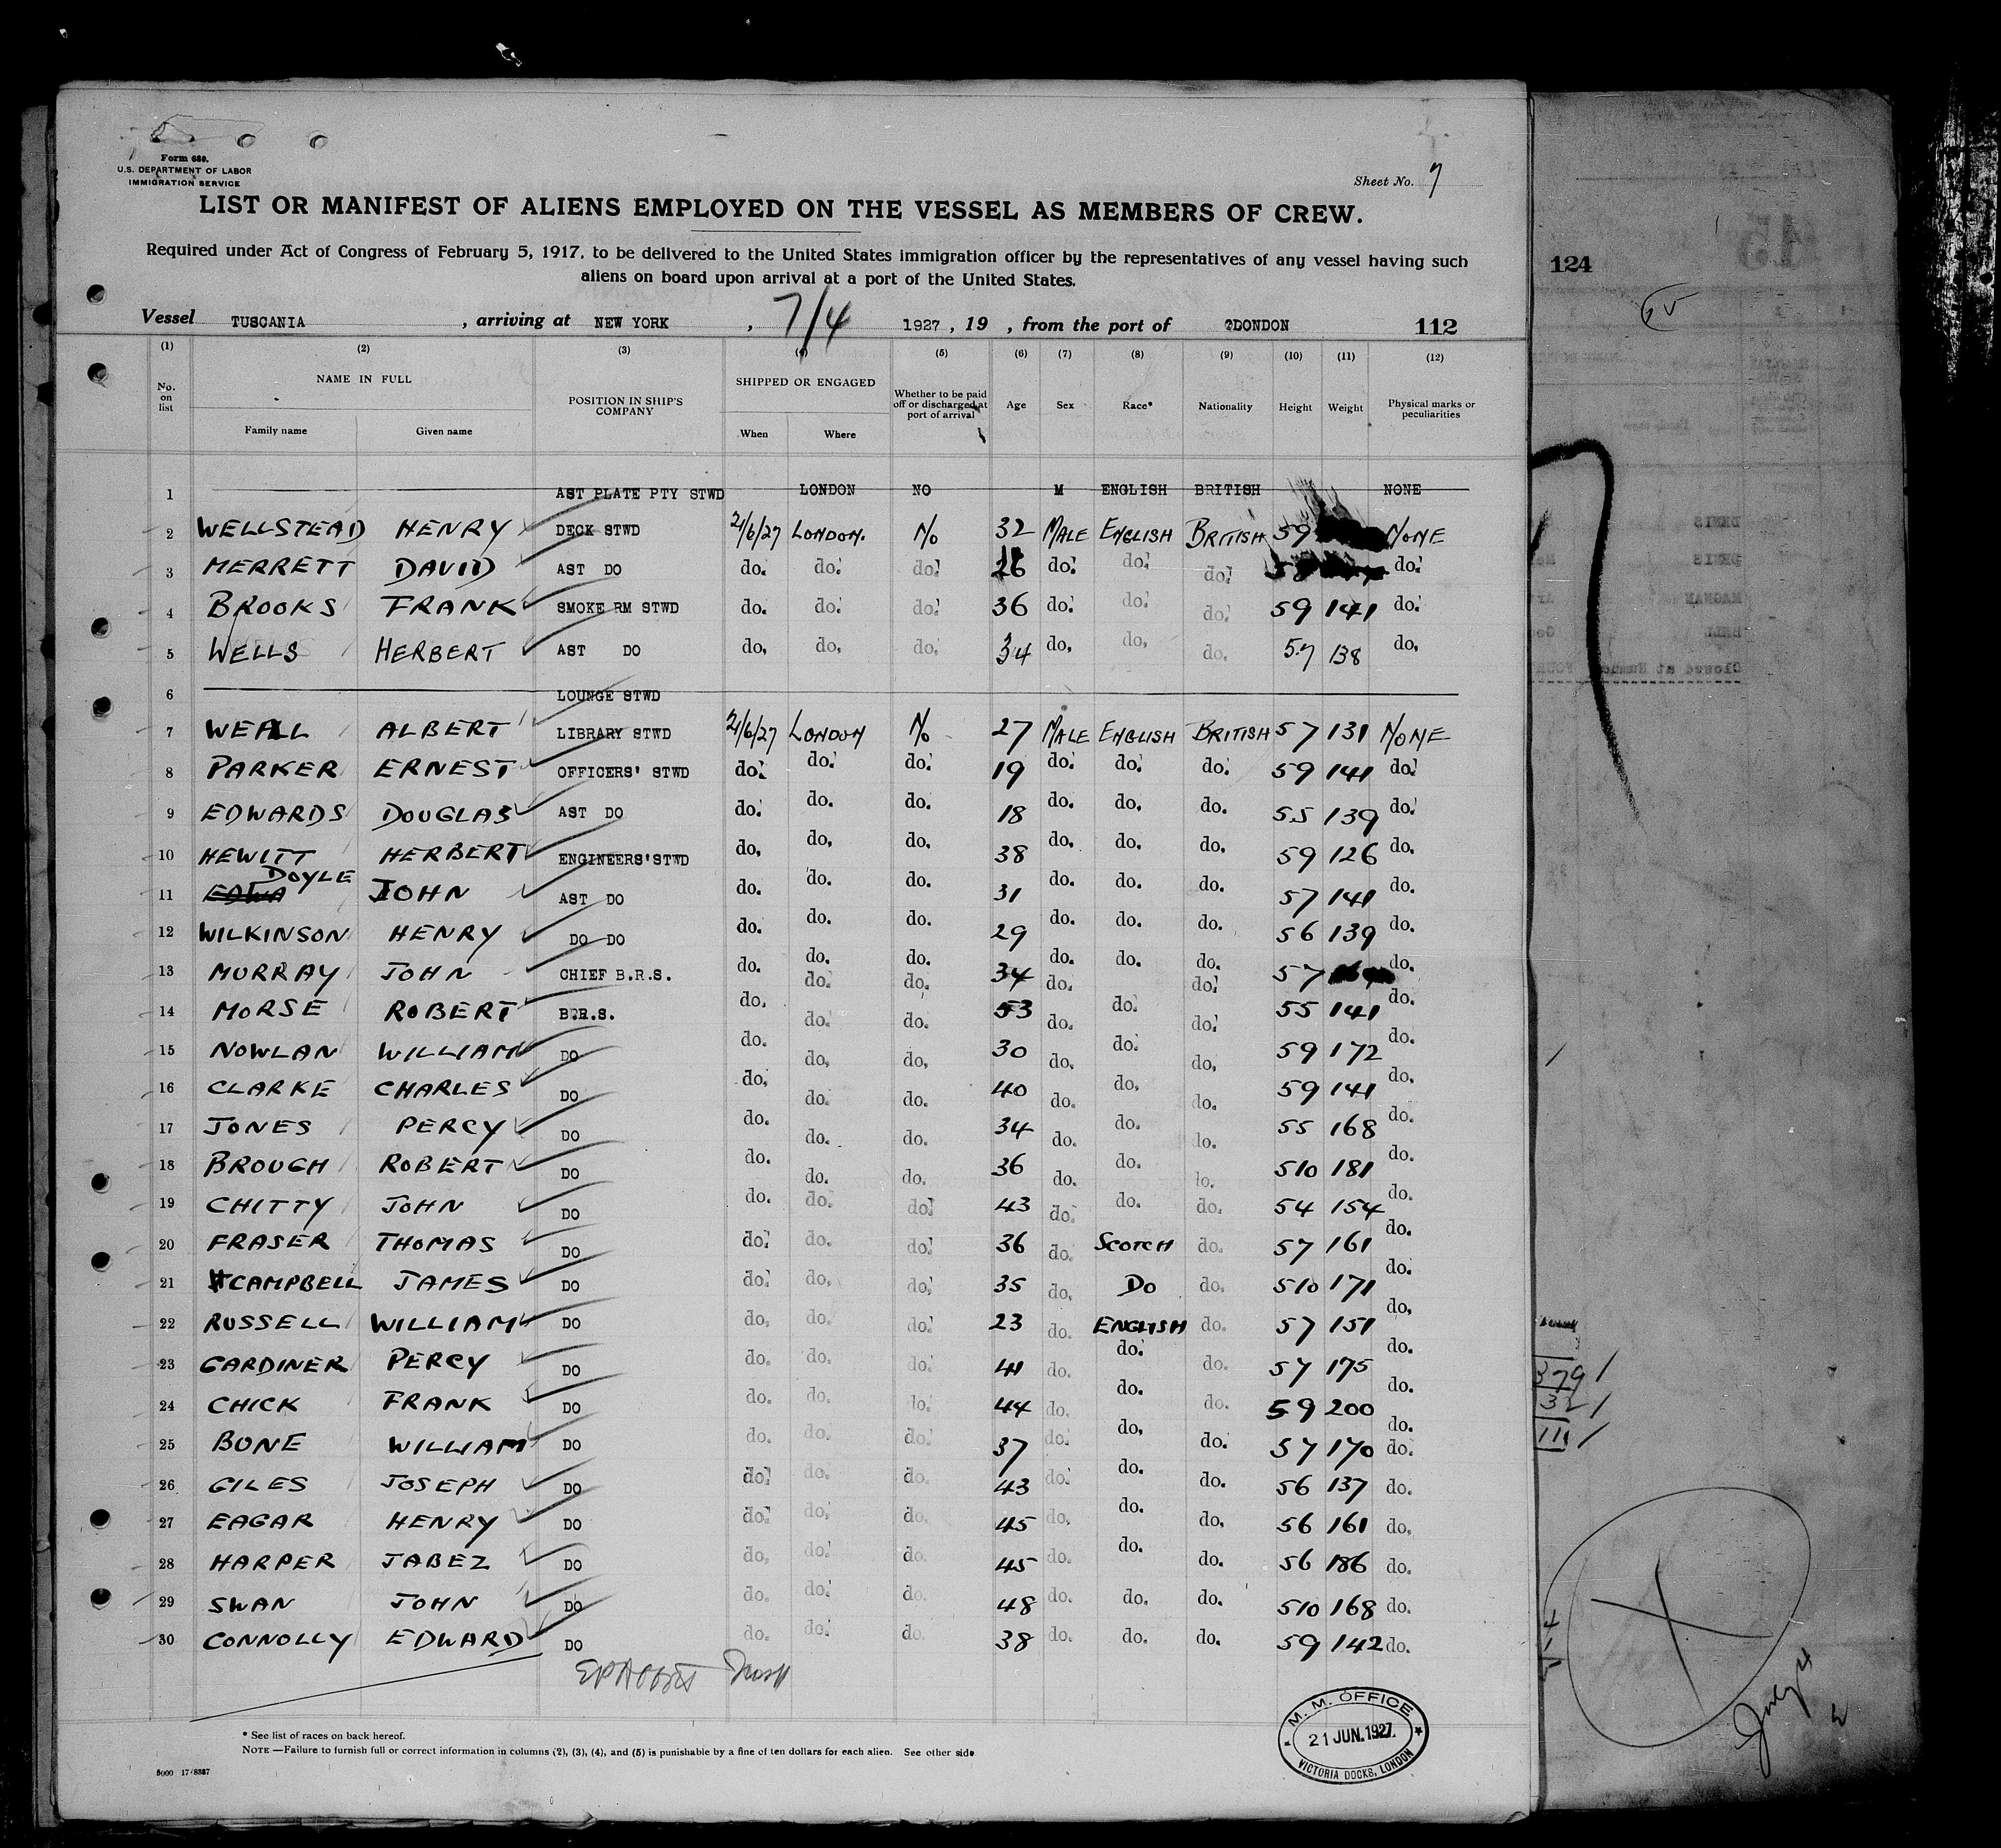 Form 680.
U.S. DEPARTMENT OF LABOR
IMMIGRATION SERVICE
Sheet No. 7
LIST OR MANIFEST OF ALIENS EMPLOYED ON THE VESSEL AS MEMBERS OF CREW.
Required under Act of Congress of February 5, 1917, to be delivered to the United States immigration officer by the representatives of any vessel having such
aliens on board upon arrival at a port of the United States.
124
Vessel TUSCANIA , arriving at NEW YORK , 7/4 1927 , 19 , from the port of LONDON 112
(1) (2) (3) (4) (5) (6) (7) (8) (9) (10) (11) (12)
No. on list NAME IN FULL Family name Given name POSITION IN SHIP'S COMPANY SHIPPED OR ENGAGED When Where Whether to be paid off or discharged at port of arrival Age Sex Race* Nationality Height Weight Physical marks or peculiarities
1 AST PLATE PTY STWD LONDON NO M ENGLISH BRITISH NONE
2 WELLSTEAD HENRY DECK STWD 21/6/27 LONDON. No 32 MALE ENGLISH BRITISH 59 NONE
3 MERRETT DAVID AST DO do. do. do. 26 do. do. do. do.
4 BROOKS FRANK SMOKE RM STWD do. do. do. 36 do. do. do. 59 141 do.
5 WELLS HERBERT AST DO do. do. do. 34 do. do. do. 5.7 138 do.
6 LOUNGE STWD
7 WEALL ALBERT LIBRARY STWD 21/6/27 LONDON No 27 MALE ENGLISH BRITISH 57 131 NONE
8 PARKER ERNEST OFFICERS' STWD do. do. do. 19 do. do. do. 59 141 do.
9 EDWARDS DOUGLAS AST DO do. do. do. 18 do. do. do. 55 139 do.
10 HEWITT HERBERT ENGINEERS'STWD do. do. do. 38 do. do. do. 59 126 do.
11 EDWA DOYLE JOHN AST DO do. do. do. 31 do. do. do. 57 141 do.
12 WILKINSON HENRY DO DO do. do. do. 29 do. do. do. 56 139 do.
13 MURRAY JOHN CHIEF B.R.S. do. do. do. 34 do. do. do. 57 do.
14 MORSE ROBERT B.R.S. do. do. do. 53 do. do. do. 55 141 do.
15 NOWLAN WILLIAM DO do. do. do. 30 do. do. do. 59 172 do.
16 CLARKE CHARLES DO do. do. do. 40 do. do. do. 59 141 do.
17 JONES PERCY DO do. do. do. 34 do. do. do. 55 168 do.
18 BROUGH ROBERT DO do. do. do. 36 do. do. do. 510 181 do.
19 CHITTY JOHN DO do. do. do. 43 do. do. do. 54 154 do.
20 FRASER THOMAS DO do. do. do. 36 do. SCOTCH do. 57 161 do.
21 CAMPBELL JAMES DO do. do. do. 35 do. DO do. 510 171 do.
22 RUSSELL WILLIAM DO do. do. do. 23 do. ENGLISH do. 57 151 do.
23 GARDINER PERCY DO do. do. do. 41 do. do. do. 57 175 do.
24 CHICK FRANK DO do. do. do. 44 do. do. do. 59 200 do.
25 BONE WILLIAM DO do. do. do. 37 do. do. do. 57 170 do.
26 GILES JOSEPH DO do. do. do. 43 do. do. do. 56 137 do.
27 EAGAR HENRY DO do. do. do. 45 do. do. do. 56 161 do.
28 HARPER JABEZ DO do. do. do. 45 do. do. do. 56 186 do.
29 SWAN JOHN DO do. do. do. 48 do. do. do. 510 168 do.
30 CONNOLLY EDWARD DO do. do. do. 38 do. do. do. 59 142 do.
379
32
111
July 4
M. M. OFFICE
21 JUN. 1927.
VICTORIA DOCKS, LONDON
* See list of races on back hereof.
NOTE —Failure to furnish full or correct information in columns (2), (3), (4), and (5) is punishable by a fine of ten dollars for each alien. See other side.